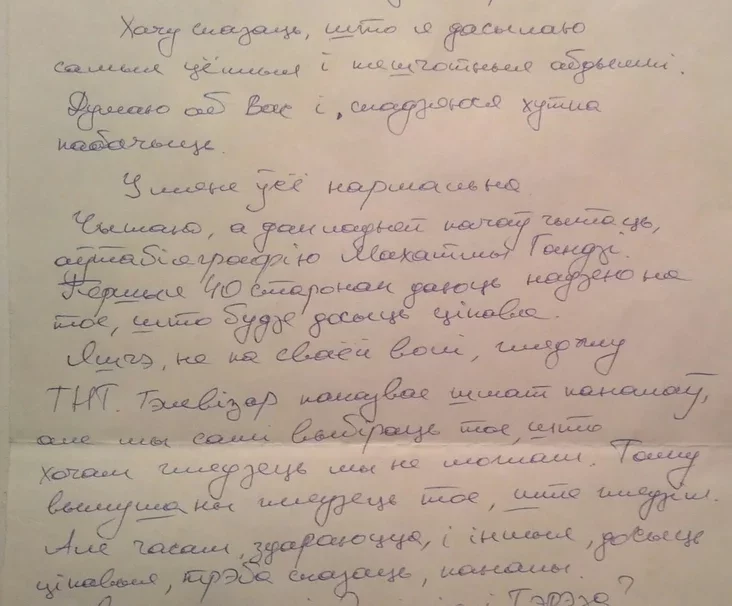 Хачу сказаць, што я дасылаю
самыя цёплыя і пяшчотныя абдымкі.
Думаю аб Вас і, спадзяюся хутка
пабачыць.
У мяне ўсё нармальна.
Чытаю, а дакладней пачаў чытаць,
аўтабіяграфію Махатмы Гандзі.
Першыя 40 старонак даюць надзею на
тое, што будзе досыць цікава.
Яшчэ, не па сваёй волі, гляджу
ТНТ. Тэлевізар паказвае шмат каналаў,
але мы самі выбіраць тое, што
хочам глядзець мы не можам. Таму
вымушаны глядзець тое, што глядзім.
Але часам, здараюцца, і іншыя, досыць
цікавыя, трэба сказаць, каналы.
Тэрэза?